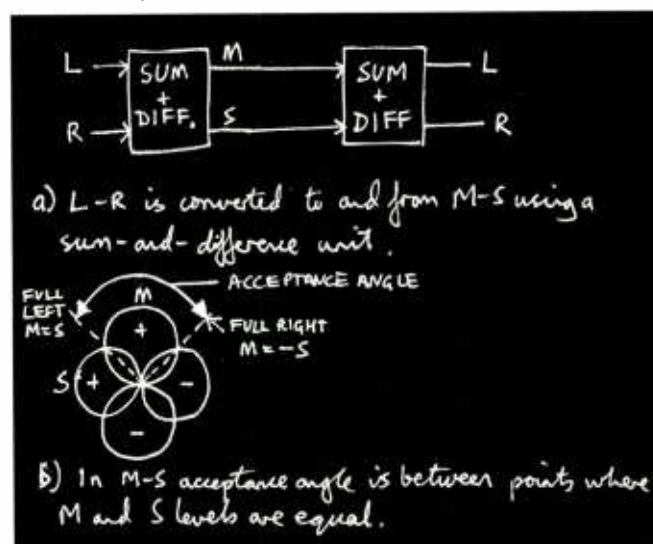 L SUM + DIFF. M S SUM + DIFF L R
R
a) L-R is converted to and from M-S using a
sum-and-difference unit.
ACCEPTANCE ANGLE
FULL LEFT M=S
M
+
FULL RIGHT M=-S
S + -
-
b) In M-S acceptance angle is between points where
M and S levels are equal.